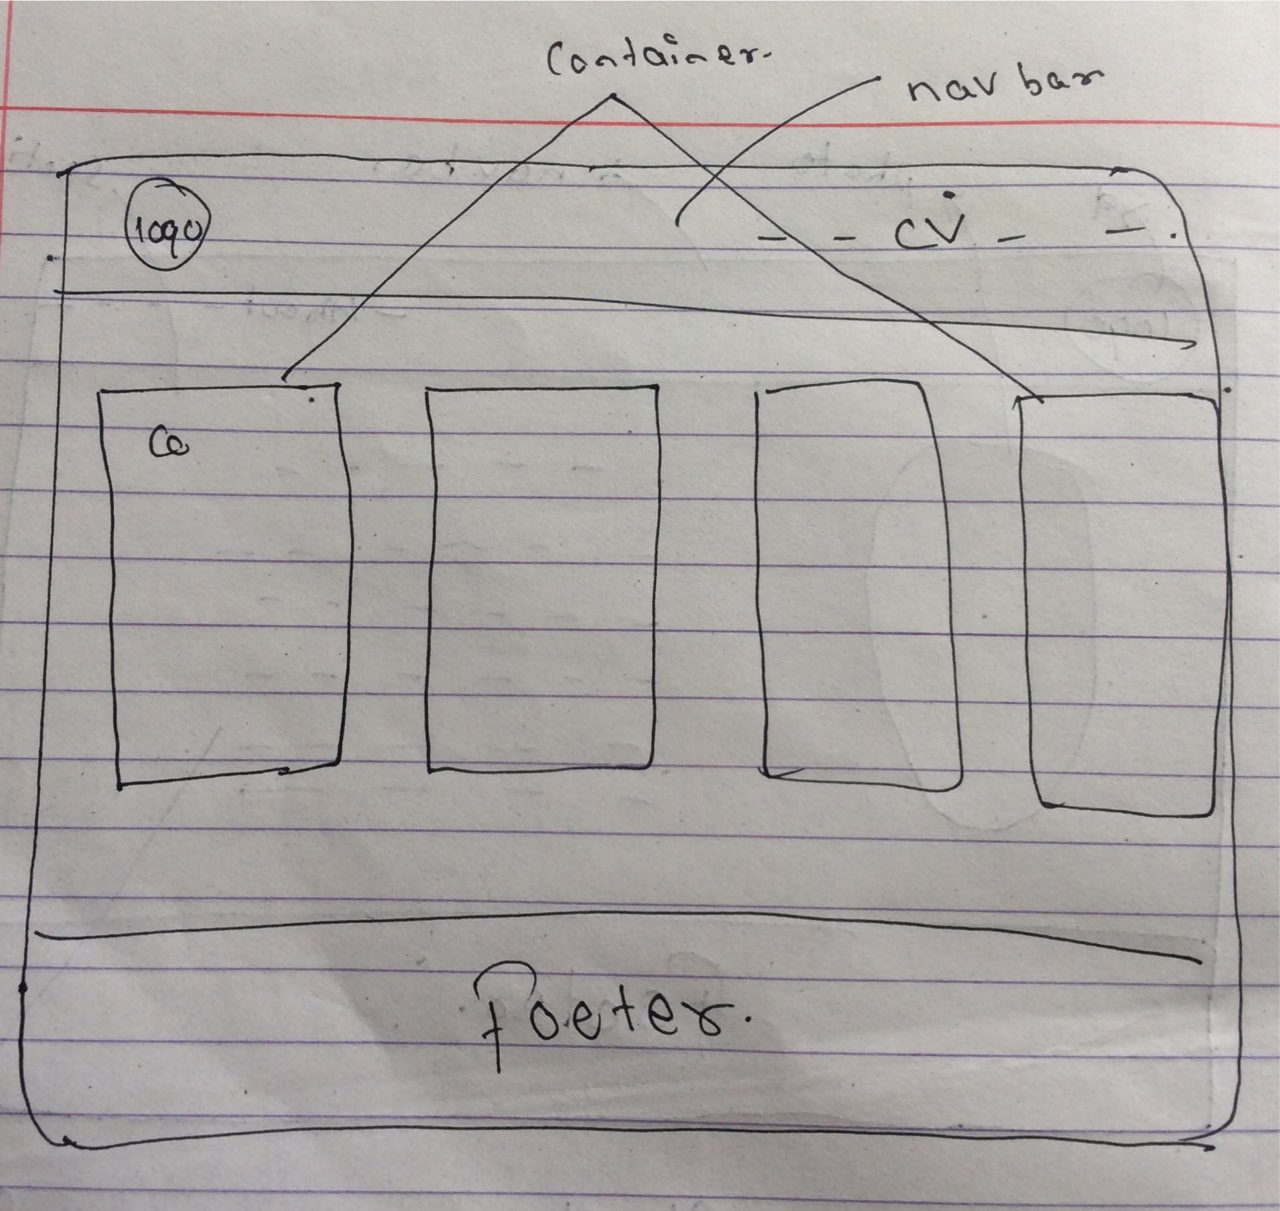 Container.
nav bar
logo
- - CV - - .
Co
Footer.